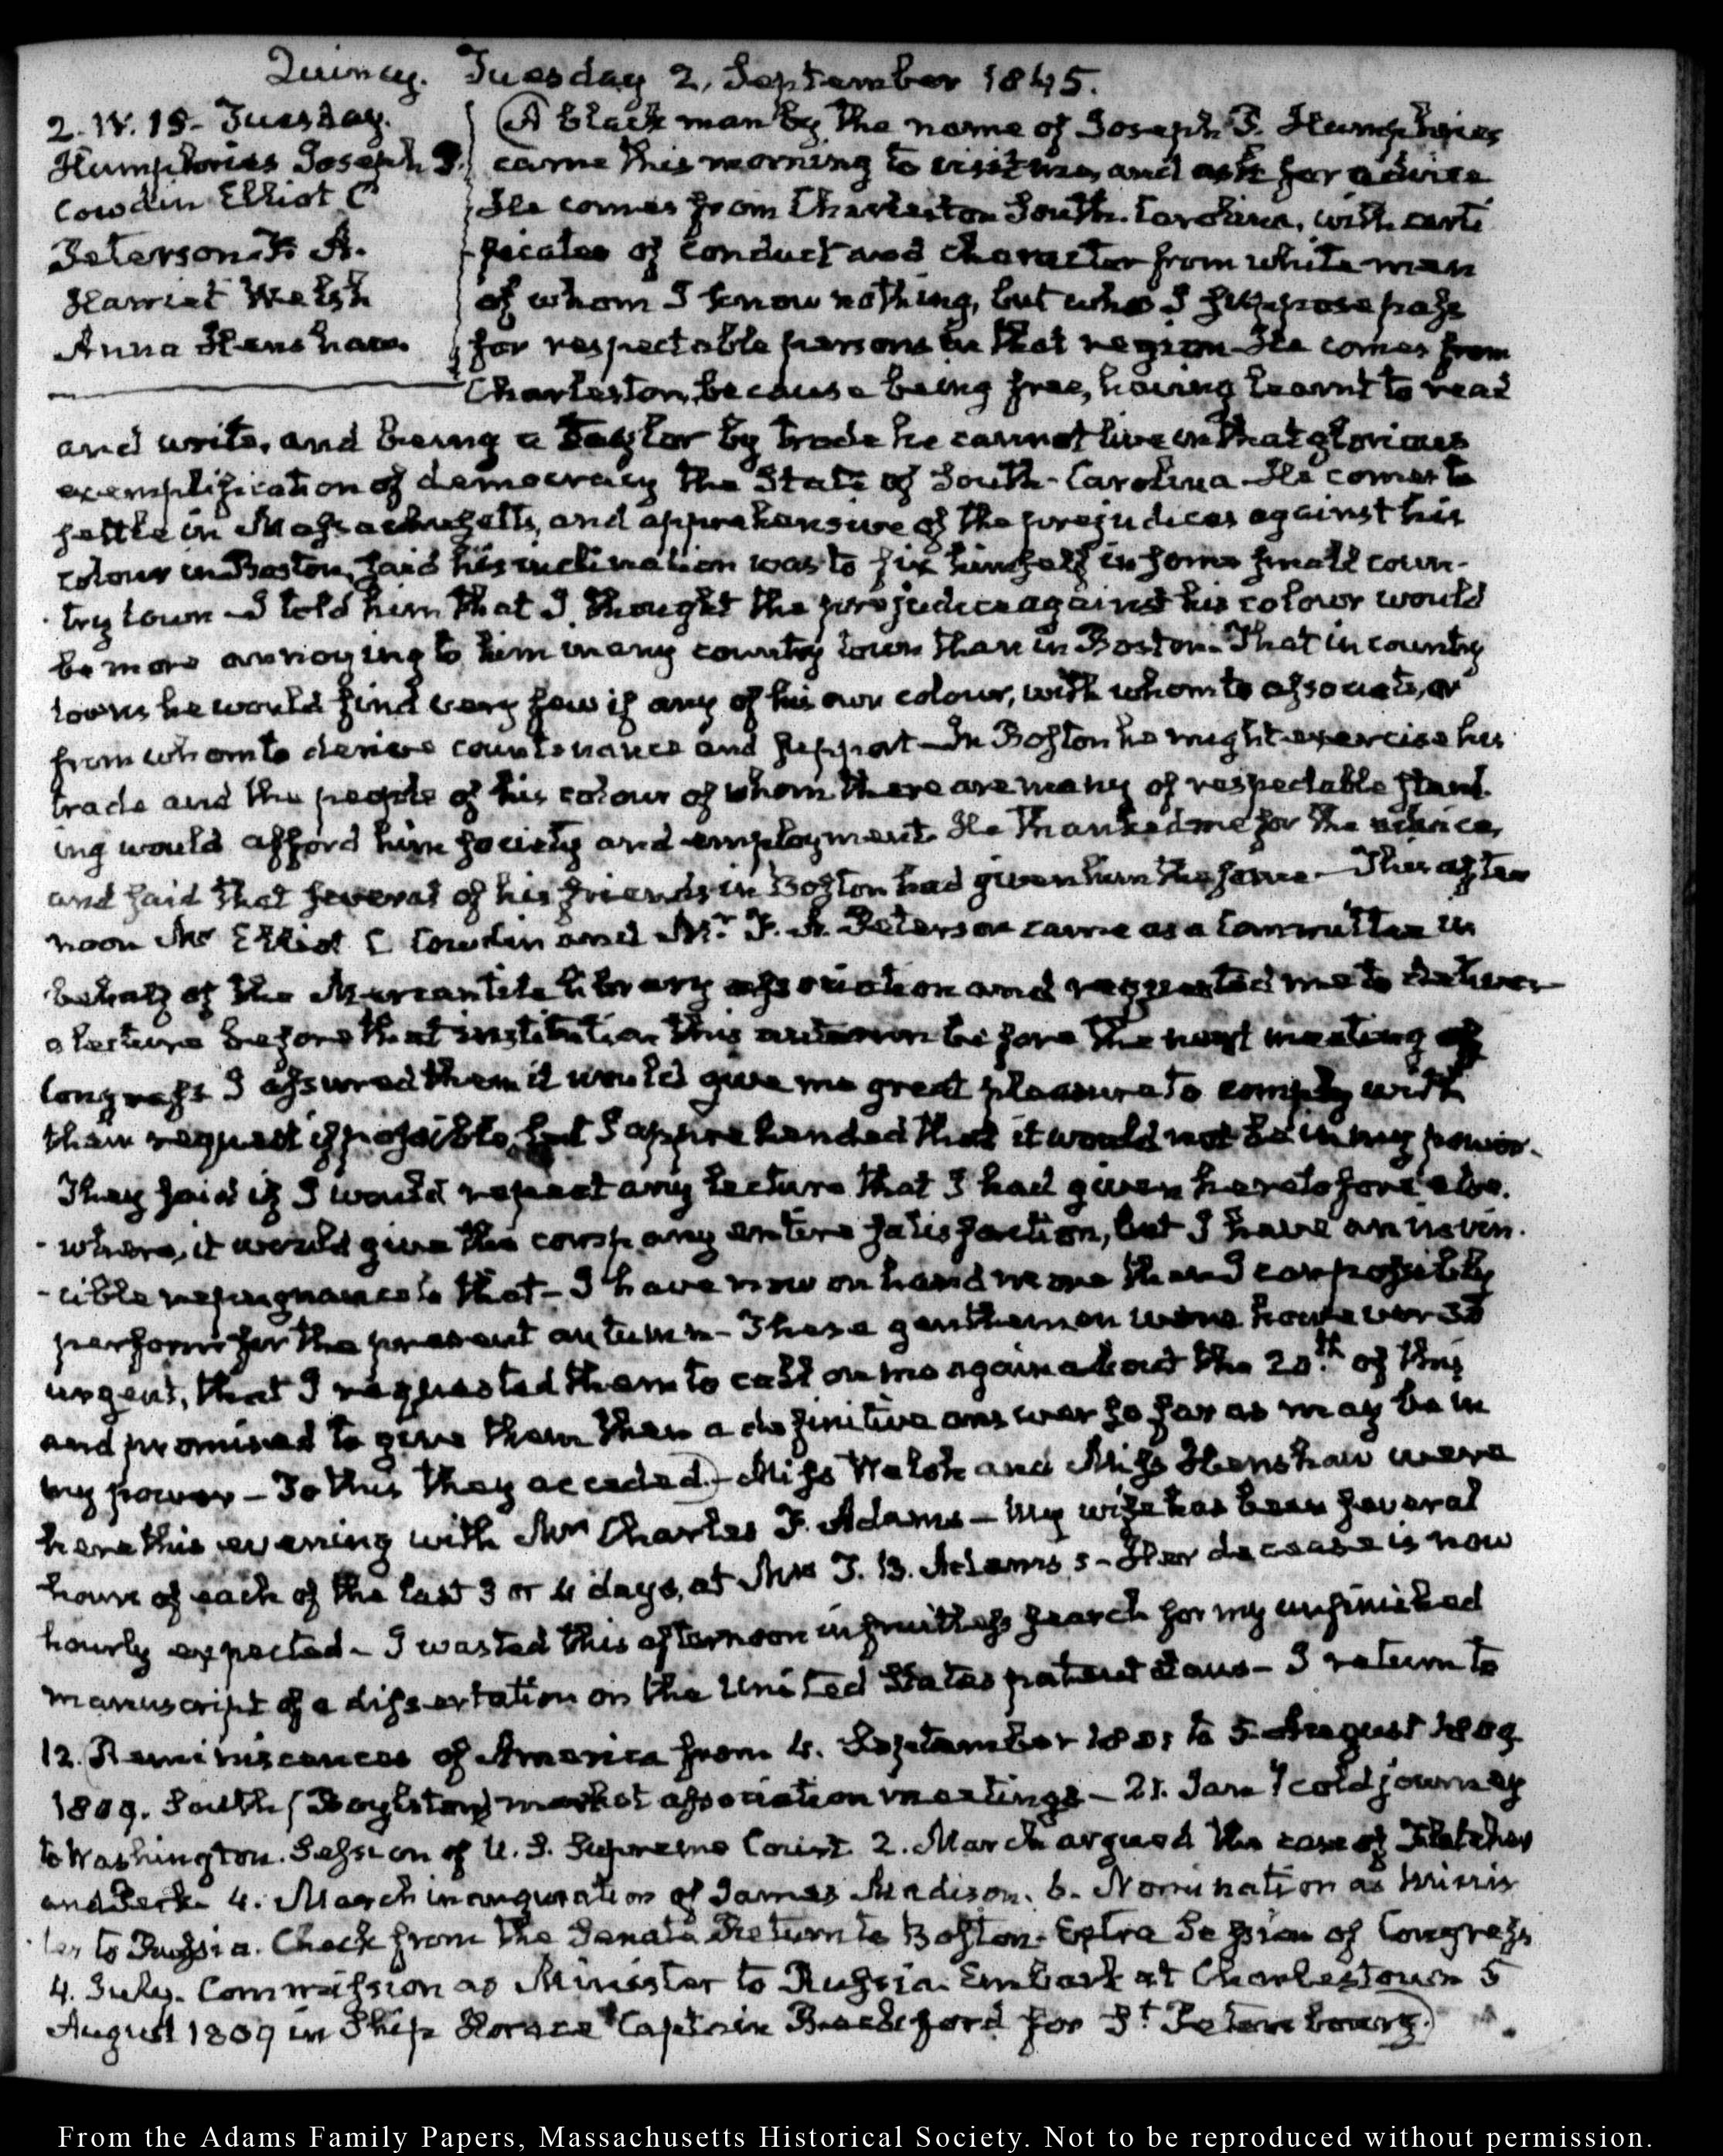 Quincy. Tuesday 2. September 1845.
2. IV. 15. Tuesday.
Humphries Joseph
Cowdin Elliot C
Peterson. A.
Harriet Welsh
Anna Henshaw.
A black man by the name of Joseph Humphries
came this morning to visit me, and ask for advice
He comes from Charleston South-Carolina, with certi
-ficates of conduct and character from white men
of whom I know nothing, but who I suppose pass
for respectable persons in that region. He comes from
Charleston, because being free, having learnt to read
and write, and being a Taylor by trade he cannot live in that glorious
exemplification of democracy the State of South-Carolina. He comes to
settle in Massachusetts, and apprehensive of the prejudices against his
colour in Boston, said his inclination was to fix himself in some small coun-
try town - I told him that I thought the prejudice against his colour would
be more annoying to him in any country town than in Boston. That in country
towns he would find very few if any of his own colour, with whom to associate, or
from whom to derive countenance and support - In Boston he might exercise his
trade and the people of his colour of whom there are many of respectable stand-
ing would afford him society and employment. He thanked me for the advice,
and said that several of his friends in Boston had given him the same - This after
noon Mr Elliot C Cowdin and Mr. Peterson came as a Committee in
behalf of the Mercantile library association and requested me to deliver
a lecture before that institution this autumn before the next meeting of
Congress I assured them it would give me great pleasure to comply with
their request if possible, but I apprehended that it would not be in my power.
They said if I would repeat any lecture that I had given heretofore else-
-where, it would give the company entire satisfaction, but I have an invin-
-cible repugnance to that - I have now on hand more than I can possibly
perform for the present autumn - These gentlemen were however so
urgent, that I requested them to call on me again about the 20th of this
and promised to give them then a definitive answer so far as may be in
my power - To this they acceded.) - Miss Welsh and Miss Henshaw were
here this evening with Mrs Charles F. Adams - My wife has been several
hours of each of the last 3 or 4 days, at Mrs T. B. Adams's - Her decease is now
hourly expected - I wasted this afternoon in fruitless search for my unfinished
manuscript of a dissertation on the United States patent laws - I return to
12. Reminiscences of America from 4. September 1801 to 5 August 1809
1809. South (Boylston) market association meetings - 21. Jany cold journey
to Washington. Session of U. S. Supreme Court 2. March argued the case of Fletcher
and Peck 4. March inauguration of James Madison. 6. Nomination as Minis
ter to Russia. Check from the Senate Return to Boston. Extra Session of Congress
4. July. Commission as Minister to Russia. Embark at Charlestown 5
August 1809 in Ship Horace Captain Beckford for St Petersbourg.)
From the Adams Family Papers, Massachusetts Historical Society. Not to be reproduced without permission.